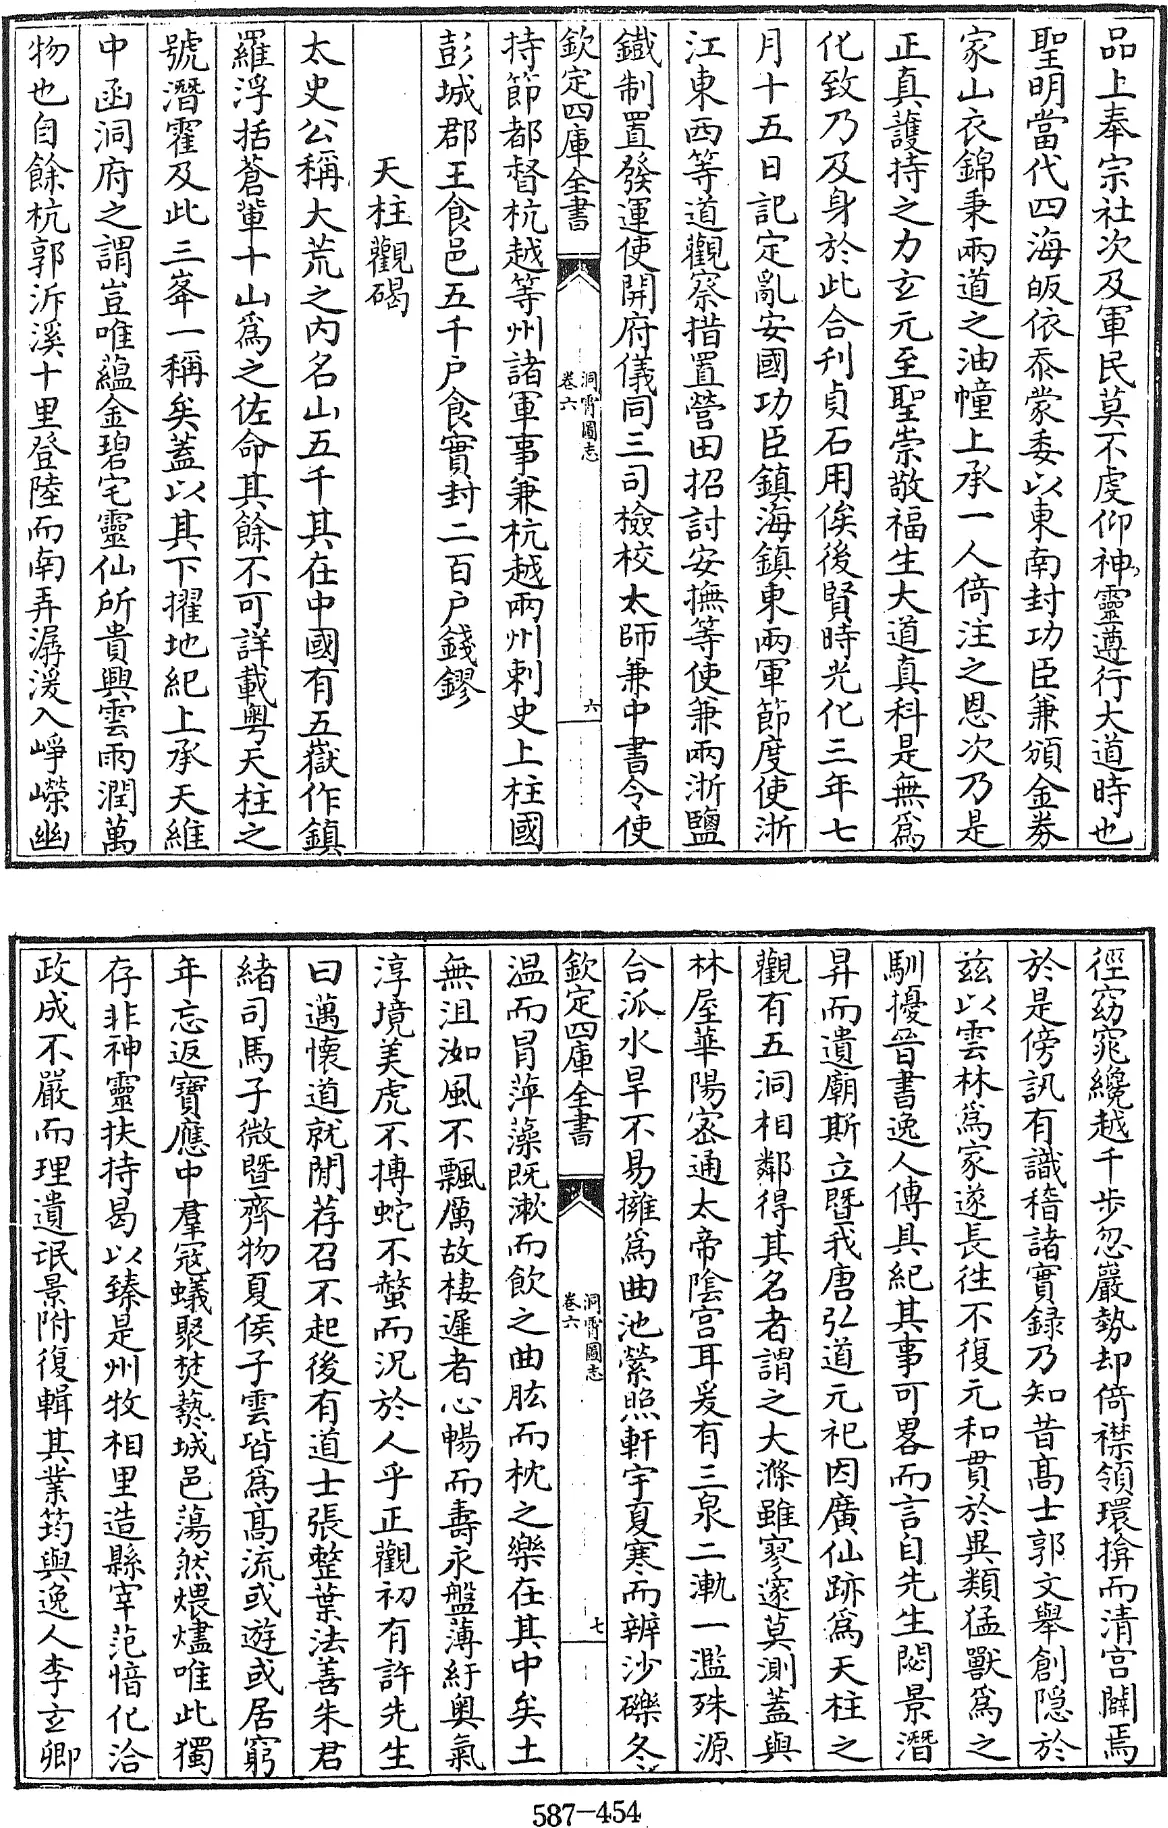 品上奉宗社次及軍民莫不虔仰神靈遵行大道時也
聖明當代四海皈依忝蒙委以東南封功臣兼頒金券
家山衣錦秉兩道之油幢上承一人倚注之恩次乃是
正真護持之力玄元至聖崇敬福生大道真科是無爲
化致乃及身於此合刋貞石用俟後賢時光化三年七
月十五日記定亂安國功臣鎮海鎮東兩軍節度使浙
江東西等道觀察措置營田招討安撫等使兼兩浙鹽
鐵制置發運使開府儀同三司檢校太師兼中書令使
欽定四庫全書
洞霄圖志
卷六
六
持節都督杭越等州諸軍事兼杭越兩州刺史上柱國
彭城郡王食邑五千户食實封二百户錢鏐
天柱觀碣
太史公稱大荒之内名山五千其在中國有五嶽作鎮
羅浮括蒼軰十山爲之佐命其餘不可詳載粤天柱之
號潛霍及此三峯一稱矣蓋以其下擢地紀上承天維
中函洞府之謂豈唯藴金碧宅靈仙所貴興雲雨潤萬
物也自餘杭郭泝溪十里登陸而南弄潺湲入崢嶸幽
徑窈窕纔越千步忽巖勢却倚襟領環揜而清宫闢焉
於是傍訊有識稽諸實録乃知昔髙士郭文舉創隐於
兹以雲林爲家遂長往不復元和貫於異類猛獸爲之
馴擾晉書逸人傳具紀其事可畧而言自先生閟景潛
昇而遺廟斯立暨我唐弘道元祀因廣仙跡爲天柱之
觀有五洞相鄰得其名者謂之大滌雖寥邃莫測蓋與
林屋華陽宻通太帝陰宫耳爰有三泉二漸一濫殊源
合派水旱不易擁爲曲池縈照軒宇夏寒而辨沙礫冬
欽定四庫全書
洞霄圖志
卷六
七
温而冒萍藻既漱而飲之曲肱而枕之樂在其中矣土
無沮洳風不飄厲故棲遲者心暢而壽永盤薄紆奥氣
淳境美虎不搏蛇不螫而况於人乎正觀初有許先生
曰邁懷道就閒荐召不起後有道士張整葉法善朱君
緒司馬子微暨齊物夏侯子雲皆爲髙流或遊或居窮
年忘返寶應中羣冦蟻聚焚爇城邑蕩然煨燼唯此獨
存非神靈扶持曷以臻是州牧相里造縣宰范愔化洽
政成不嚴而理遺氓景附復輯其業筠與逸人李玄卿
587-454